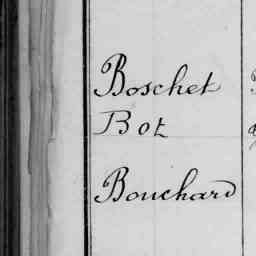 Boschet
Bot
Bouchard